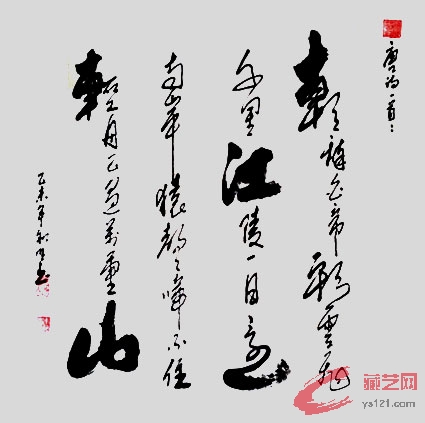 唐诗一首
朝辞白帝彩雲間
千里江陵一日還
两岸猿聲啼不住
輕舟已過萬重山
乙未年秋月書
藏艺网
ys121.com